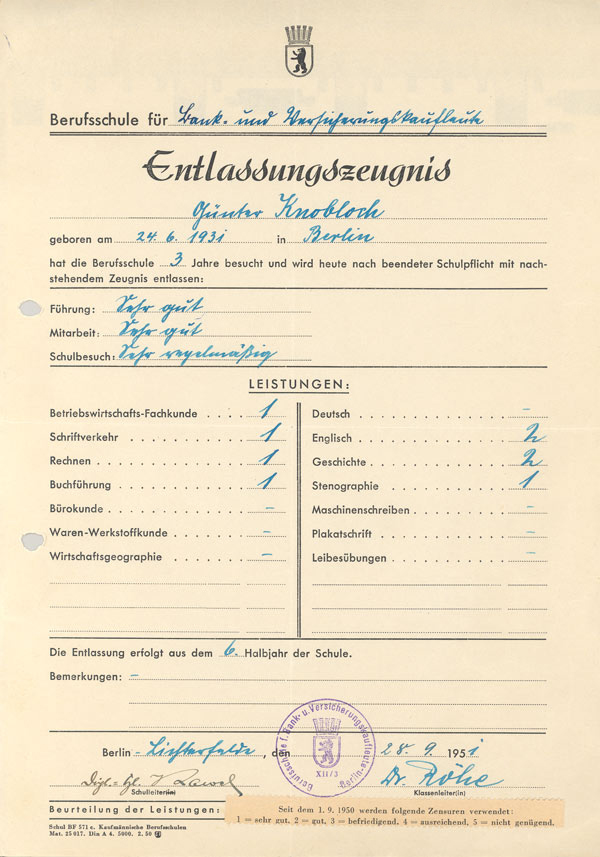 Berufsschule für Bank- und Versicherungskaufleute
Entlassungszeugnis
Günter Knobloch
geboren am 24. 6. 1931 in Berlin
hat die Berufsschule 3 Jahre besucht und wird heute nach beendeter Schulpflicht mit nach-
stehendem Zeugnis entlassen:
Führung: Sehr gut
Mitarbeit: Sehr gut
Schulbesuch: Sehr regelmäßig
LEISTUNGEN:
Betriebswirtschafts-Fachkunde . . . . 1
Schriftverkehr . . . . 1
Rechnen . . . . 1
Buchführung . . . . 1
Bürokunde . . . . –
Waren-Werkstoffkunde . . . . –
Wirtschaftsgeographie . . . . –
Deutsch . . . . –
Englisch . . . . 2
Geschichte . . . . 2
Stenographie . . . . 1
Maschinenschreiben . . . . –
Plakatschrift . . . . –
Leibesübungen . . . . –
Die Entlassung erfolgt aus dem 6. Halbjahr der Schule.
Bemerkungen: –
Berufsschule f. Bank- u. Versicherungskaufleute
XII/3
Berlin-
Berlin - Lichterfelde, den 28. 9. 1951
Dipl.- Hdl.
Dr. Röhe
Schulleiter(in)
Klassenleiter(in)
Beurteilung der Leistungen:
Seit dem 1. 9. 1950 werden folgende Zensuren verwendet:
1 = sehr gut, 2 = gut, 3 = befriedigend, 4 = ausreichend, 5 = nicht genügend.
Schul BF 571 c. Kaufmännische Berufsschulen
Mat. 25 017. Din A 4. 5000. 2. 50